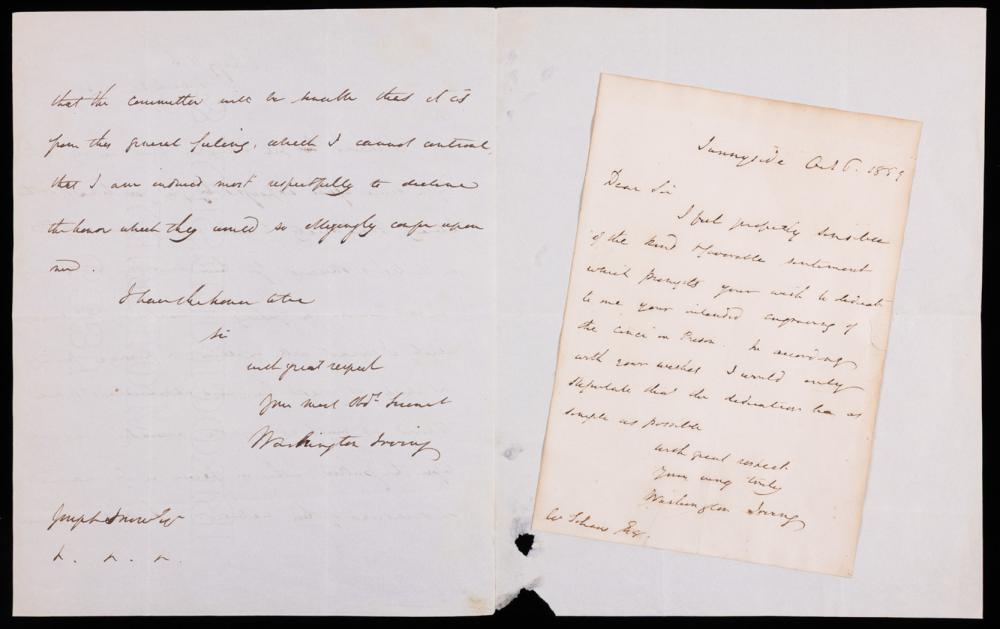 that the committee will be sensible that it is
from this general feeling, which I cannot control,
that I am induced most respectfully to decline
the honor which they would so obligingly confer upon
me.
I have the honor to be
Sir
with great respect
Your most Obdt. Servant
Washington Irving
Joseph Esqr
Sunnyside Oct 6. 185
Dear Sir
I feel properly sensible
of the kind & favorable sentiment
which prompts your wish to dedicate
to me your intended engraving of
the in Prison. In according
with your wishes I would only
stipulate that the dedication be as
simple as possible
with great respect
Yours very truly
Washington Irving
W Schaus Esq.